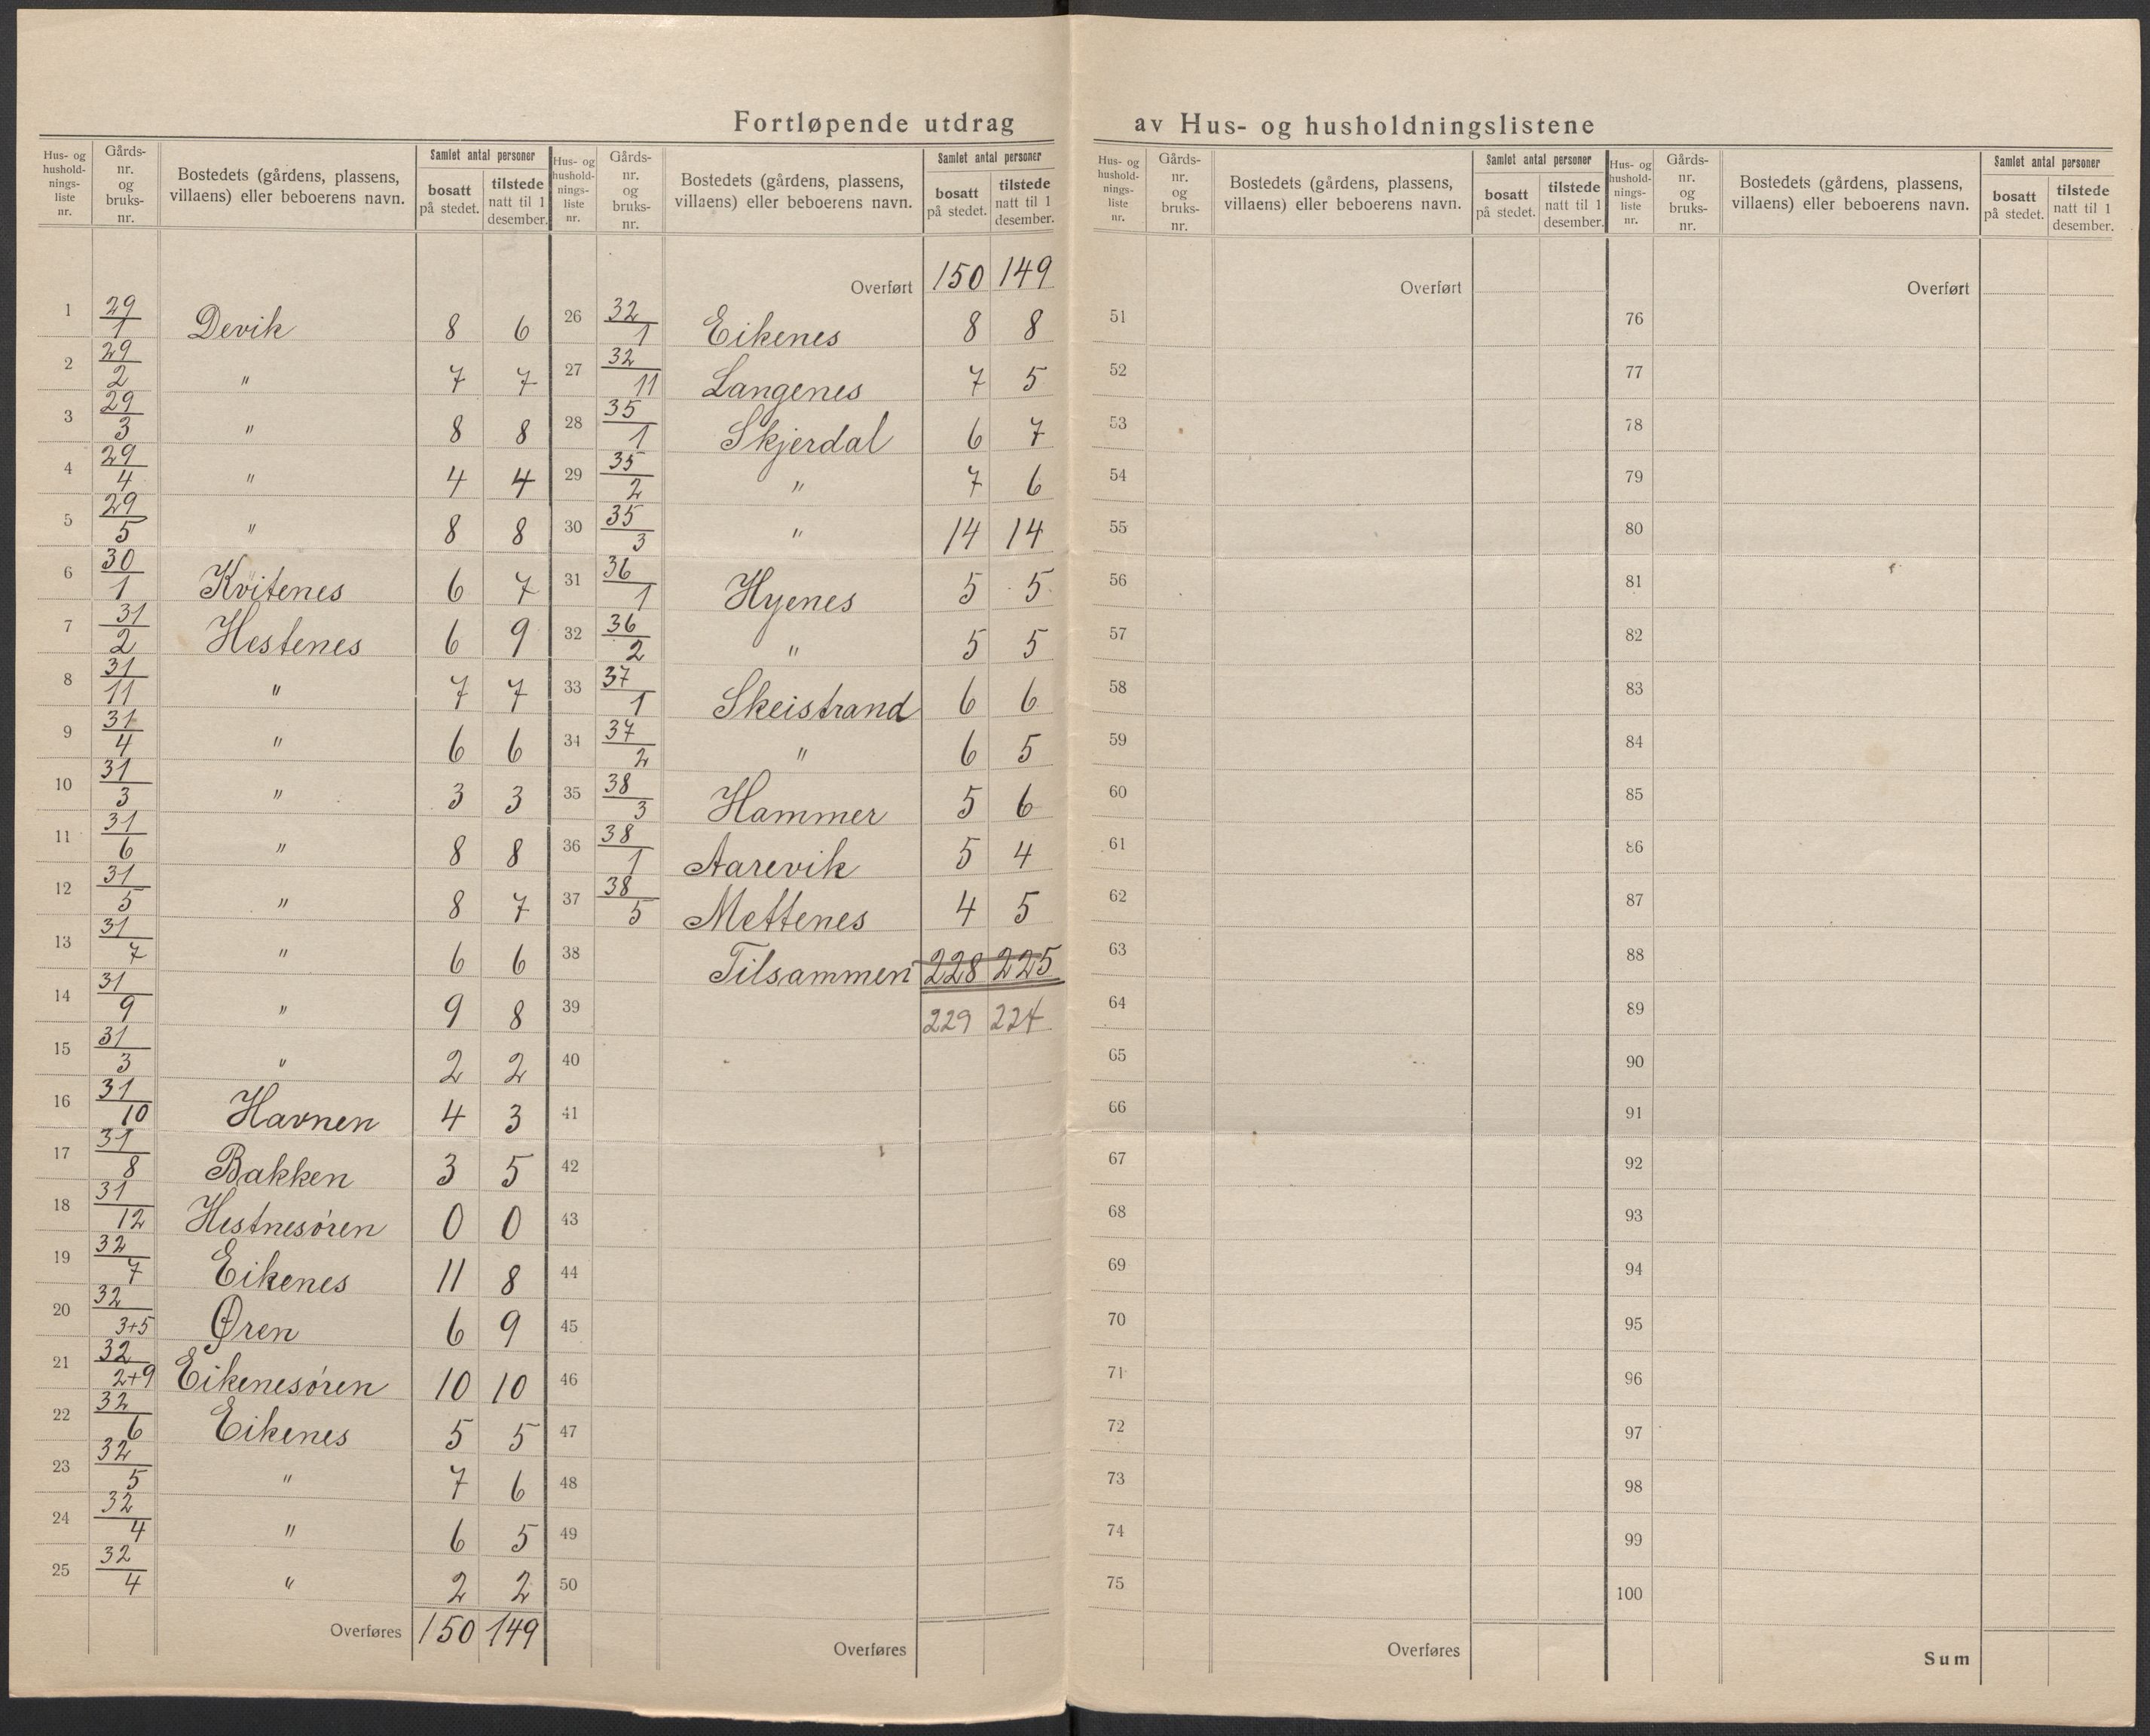 Fortløpende utdrag av Hus- og husholdningslistene
Hus- og hushold-nings-liste nr. | Gårds-nr. og bruks-nr. | Bostedets (gårdens, plassens, villaens) eller beboerens navn. | Samlet antal personer | bosatt på stedet. | tilstede natt til 1 desember.
1 29/1 Devik 8 6
2 29/2 " 7 7
3 29/3 " 8 8
4 29/4 " 4 4
5 29/5 " 8 8
6 30/1 Kvitenes 6 7
7 31/2 Hestenes 6 9
8 31/11 " 7 7
9 31/4 " 6 6
10 31/3 " 3 3
11 31/6 " 8 8
12 31/5 " 8 7
13 31/7 " 6 6
14 31/9 " 9 8
15 31/3 " 2 2
16 31/10 Havnen 4 3
17 31/8 Bakken 3 5
18 31/12 Hestnesøren 0 0
19 32/7 Eikenes 11 8
20 32/3+5 Øren 6 9
21 32/2+9 Eikenesøren 10 10
22 32/6 Eikenes 5 5
23 32/5 " 7 6
24 32/4 " 6 5
25 32/4 " 2 2
Overføres 150 149
Hus- og hushold-nings-liste nr. | Gårds-nr. og bruks-nr. | Bostedets (gårdens, plassens, villaens) eller beboerens navn. | Samlet antal personer | bosatt på stedet. | tilstede natt til 1 desember.
Overført 150 149
26 32/1 Eikenes 8 8
27 32/11 Langenes 7 5
28 35/1 Skjerdal 6 7
29 35/2 " 7 6
30 35/3 " 14 14
31 36/1 Hyenes 5 5
32 36/2 " 5 5
33 37/1 Skeistrand 6 6
34 37/2 " 6 5
35 38/3 Hammer 5 6
36 38/1 Aarevik 5 4
37 38/5 Mettenes 4 5
38 Tilsammen 228 225
39 229 224
40
41
42
43
44
45
46
47
48
49
50
Overføres
Hus- og hushold-nings-liste nr. | Gårds-nr. og bruks-nr. | Bostedets (gårdens, plassens, villaens) eller beboerens navn. | Samlet antal personer | bosatt på stedet. | tilstede natt til 1 desember.
Overført
51
52
53
54
55
56
57
58
59
60
61
62
63
64
65
66
67
68
69
70
71
72
73
74
75
Overføres
Hus- og hushold-nings-liste nr. | Gårds-nr. og bruks-nr. | Bostedets (gårdens, plassens, villaens) eller beboerens navn. | Samlet antal personer | bosatt på stedet. | tilstede natt til 1 desember.
Overført
76
77
78
79
80
81
82
83
84
85
86
87
88
89
90
91
92
93
94
95
96
97
98
99
100
Sum